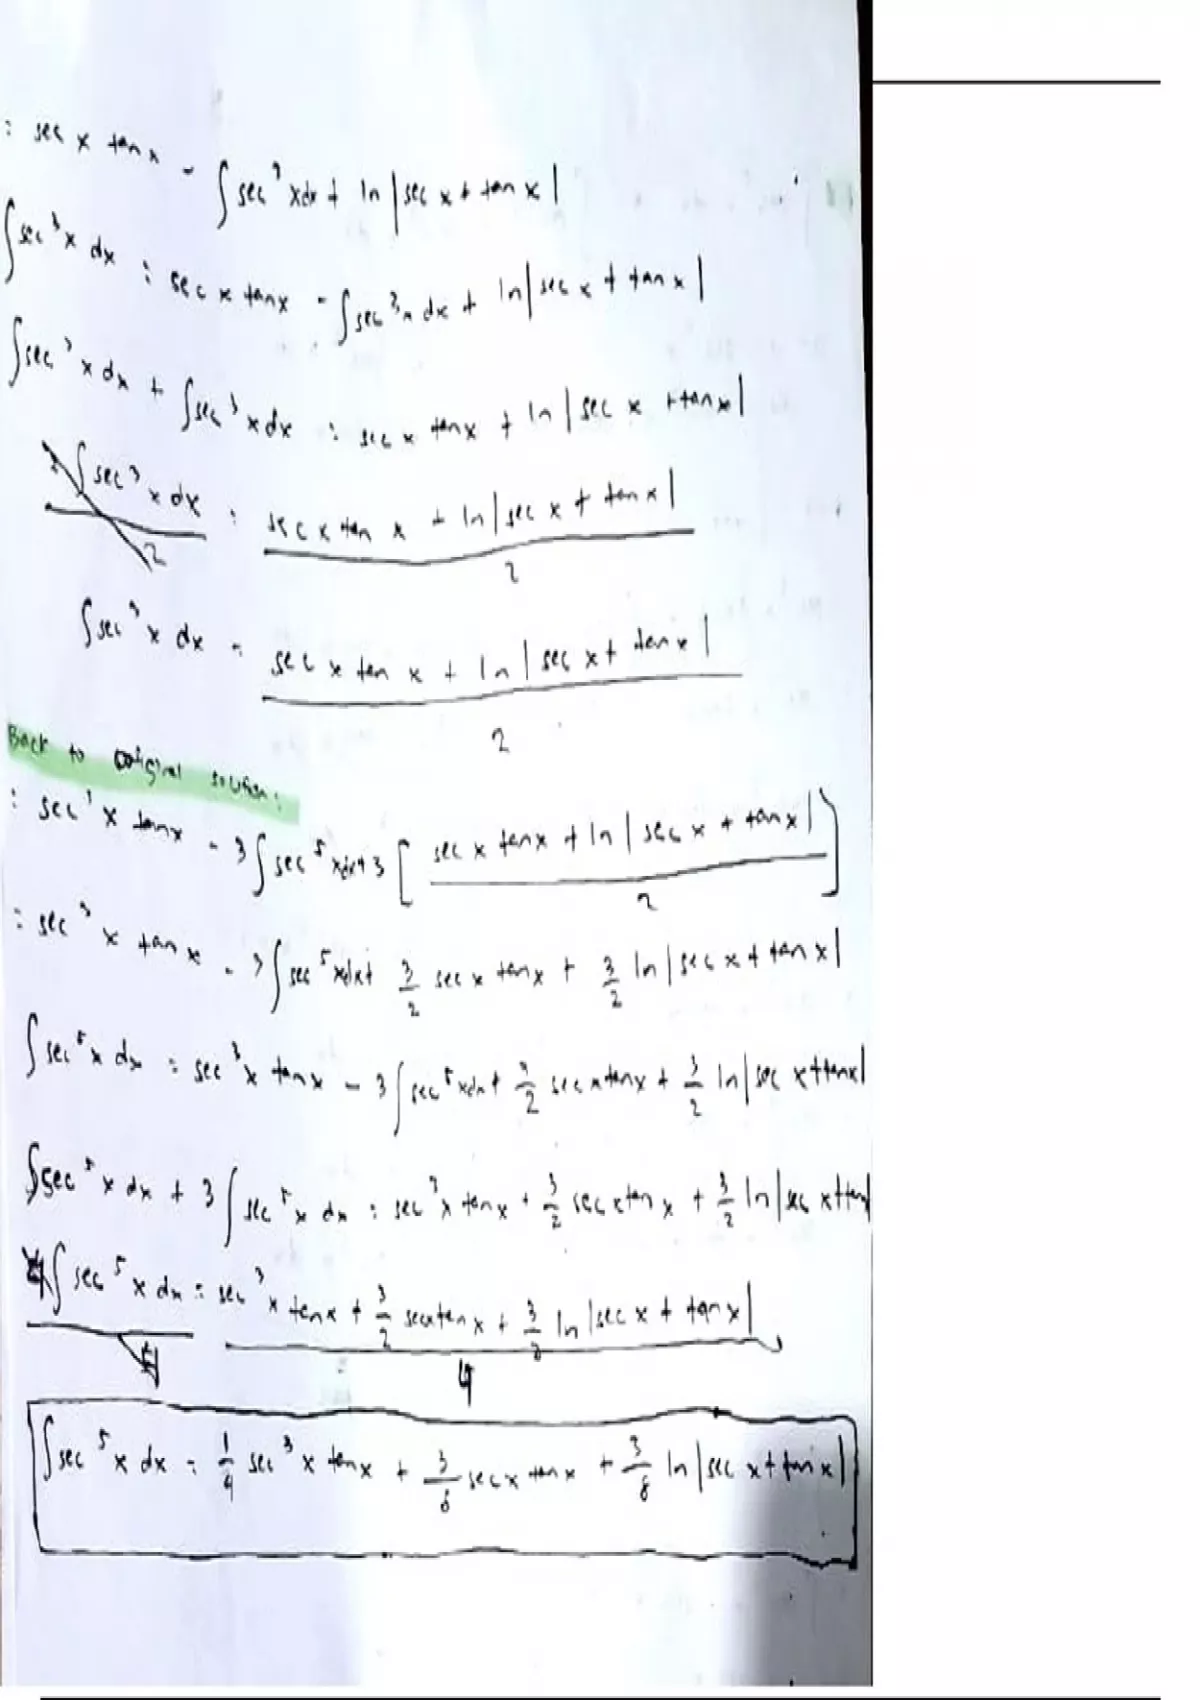 = sec x tan x - ∫sec³ x dx + ln |sec x + tan x|
∫sec³ x dx = sec x tan x - ∫sec³ x dx + ln |sec x + tan x|
∫sec³ x dx + ∫sec³ x dx = sec x tan x + ln |sec x + tan x|
2∫sec³ x dx / 2 = sec x tan x + ln |sec x + tan x| / 2
∫sec³ x dx = sec x tan x + ln |sec x + tan x| / 2
Back to original solution:
= sec³ x tan x - 3∫sec⁵ x dx + 3 [sec x tan x + ln |sec x + tan x| / 2]
= sec³ x tan x - 3∫sec⁵ x dx + 3/2 sec x tan x + 3/2 ln |sec x + tan x|
∫sec⁵ x dx = sec³ x tan x - 3∫sec⁵ x dx + 3/2 sec x tan x + 3/2 ln |sec x + tan x|
∫sec⁵ x dx + 3∫sec⁵ x dx = sec³ x tan x + 3/2 sec x tan x + 3/2 ln |sec x + tan
4∫sec⁵ x dx / 4 = sec³ x tan x + 3/2 sec x tan x + 3/2 ln |sec x + tan x| / 4
∫sec⁵ x dx = 1/4 sec³ x tan x + 3/8 sec x tan x + 3/8 ln |sec x + tan x|